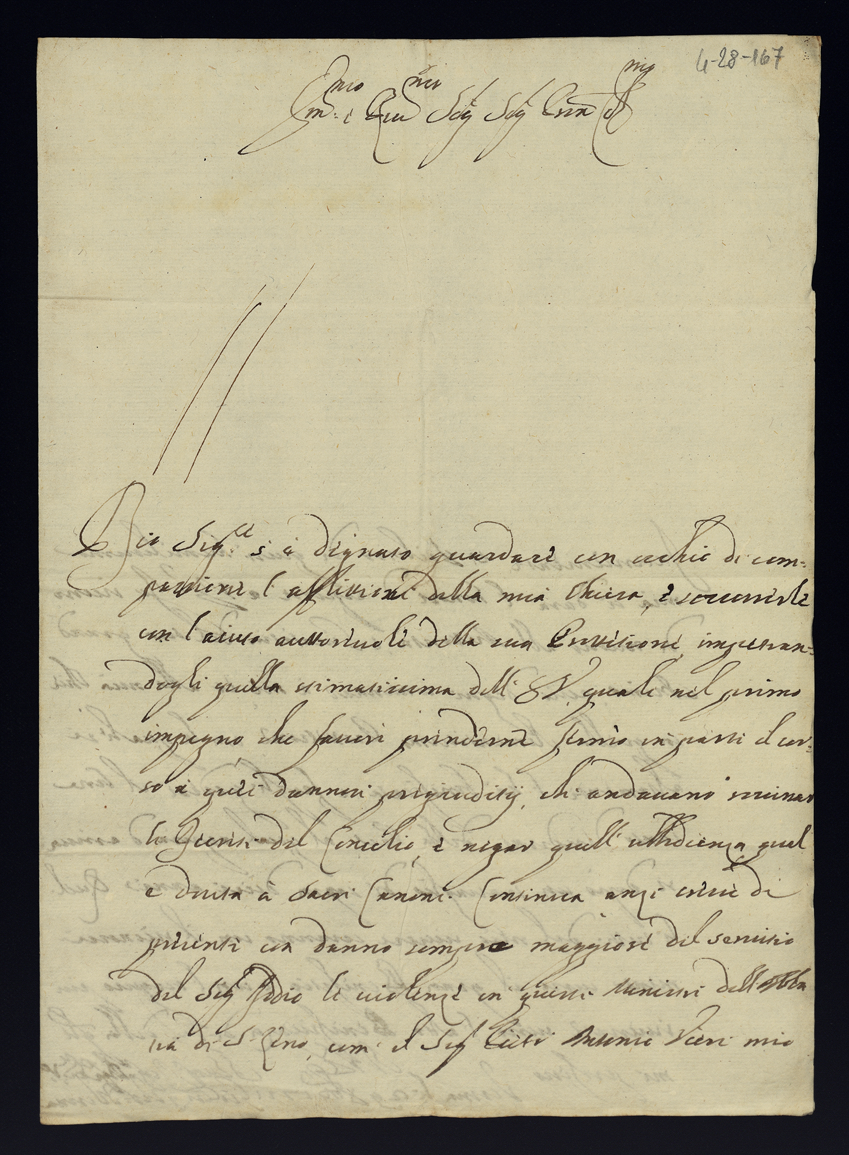 4-28-167
Em.mo e Rev.mo Sig.r Sig.r P̃ron Col.mo
Dio Sig.re s'è degnato guardare con occhio di com-
passione l'afflittione della mia Chiesa, e soccorrerle
con l'aiuto auttorevole della sua Prottetione, impetran-
dogli quella stimatissima dell' EV. quale nel primo
impegno che favorì prenderne fermò in parte il cor-
so a quei dannosi pregiuditij, che andavano
li Decreti del Concilio, e negar quell' ubbidienza qual
è douta a Sacri Canoni. Continua anzi cresce di
presente con danno sempre maggiore del servitio
del Sig. Iddio le violenze in questi Ministri dell' Abba
tia di S. Zeno, come il Sig. Antonio mio